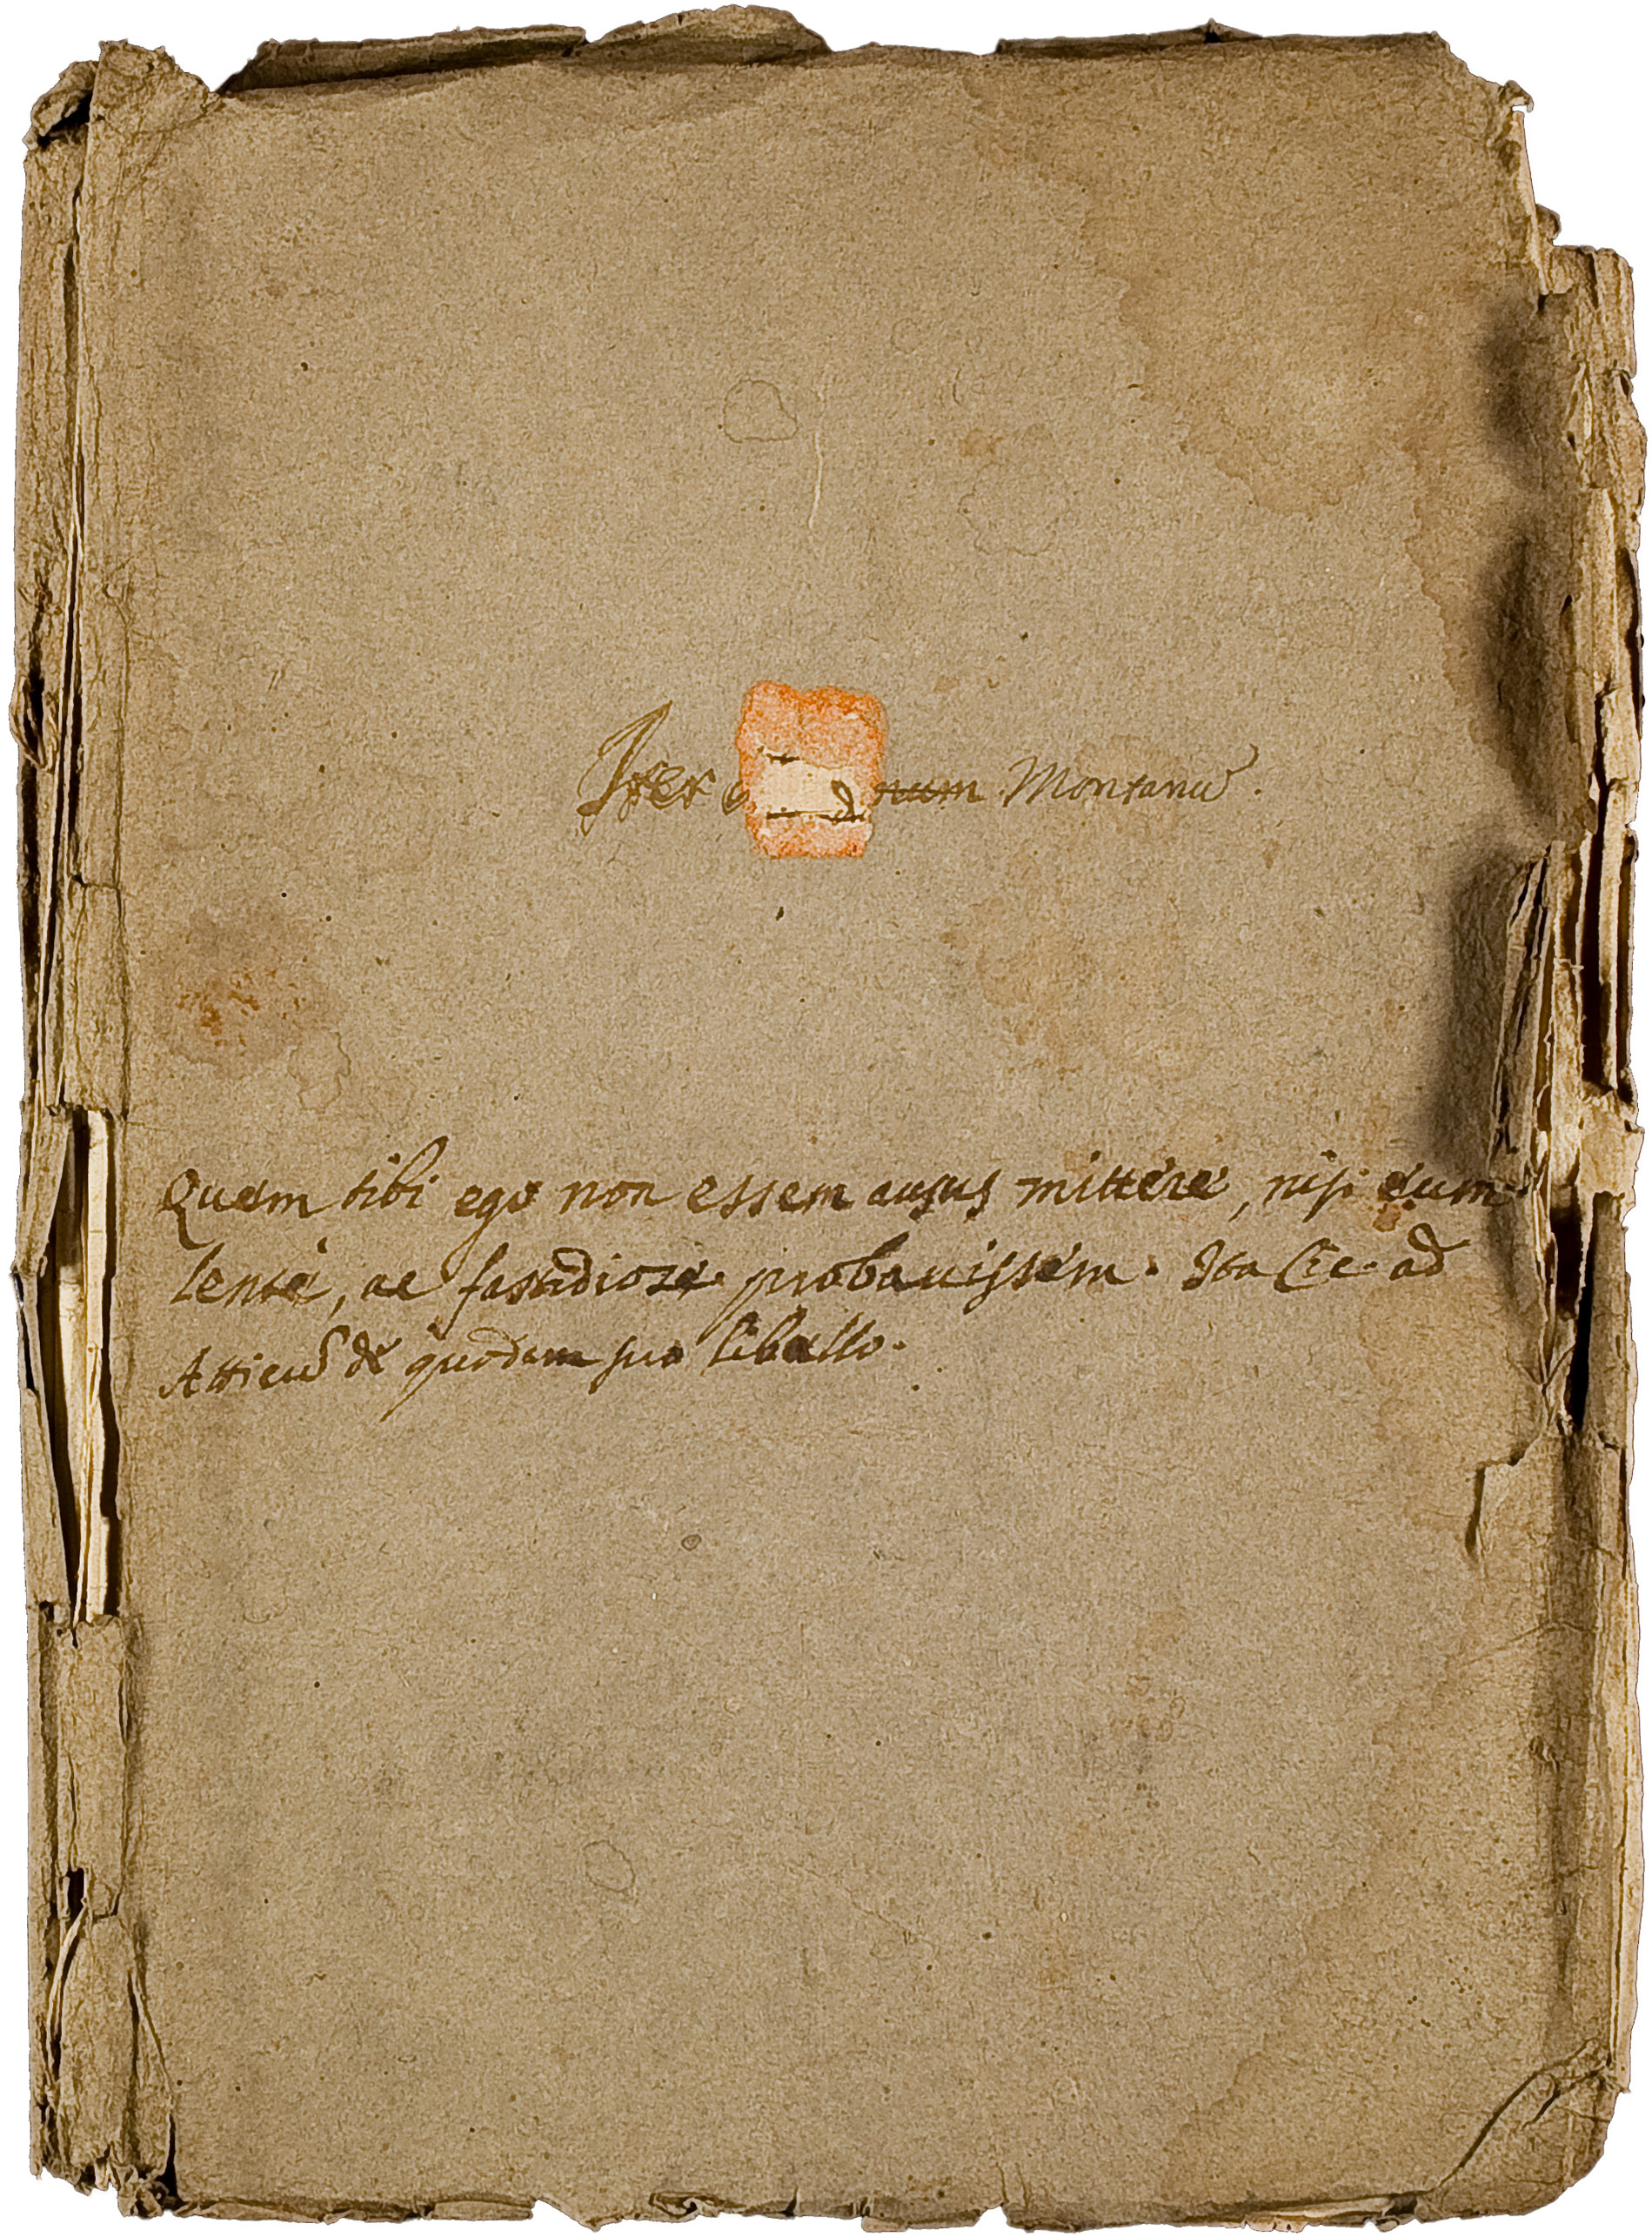 Iter num Montanũ.
Quem tibi ego non essem ausus mittere, nisi eum
lente, ac fastidiose probauissem. Ita Cic. ad
Atticũ de quodam suo libello.